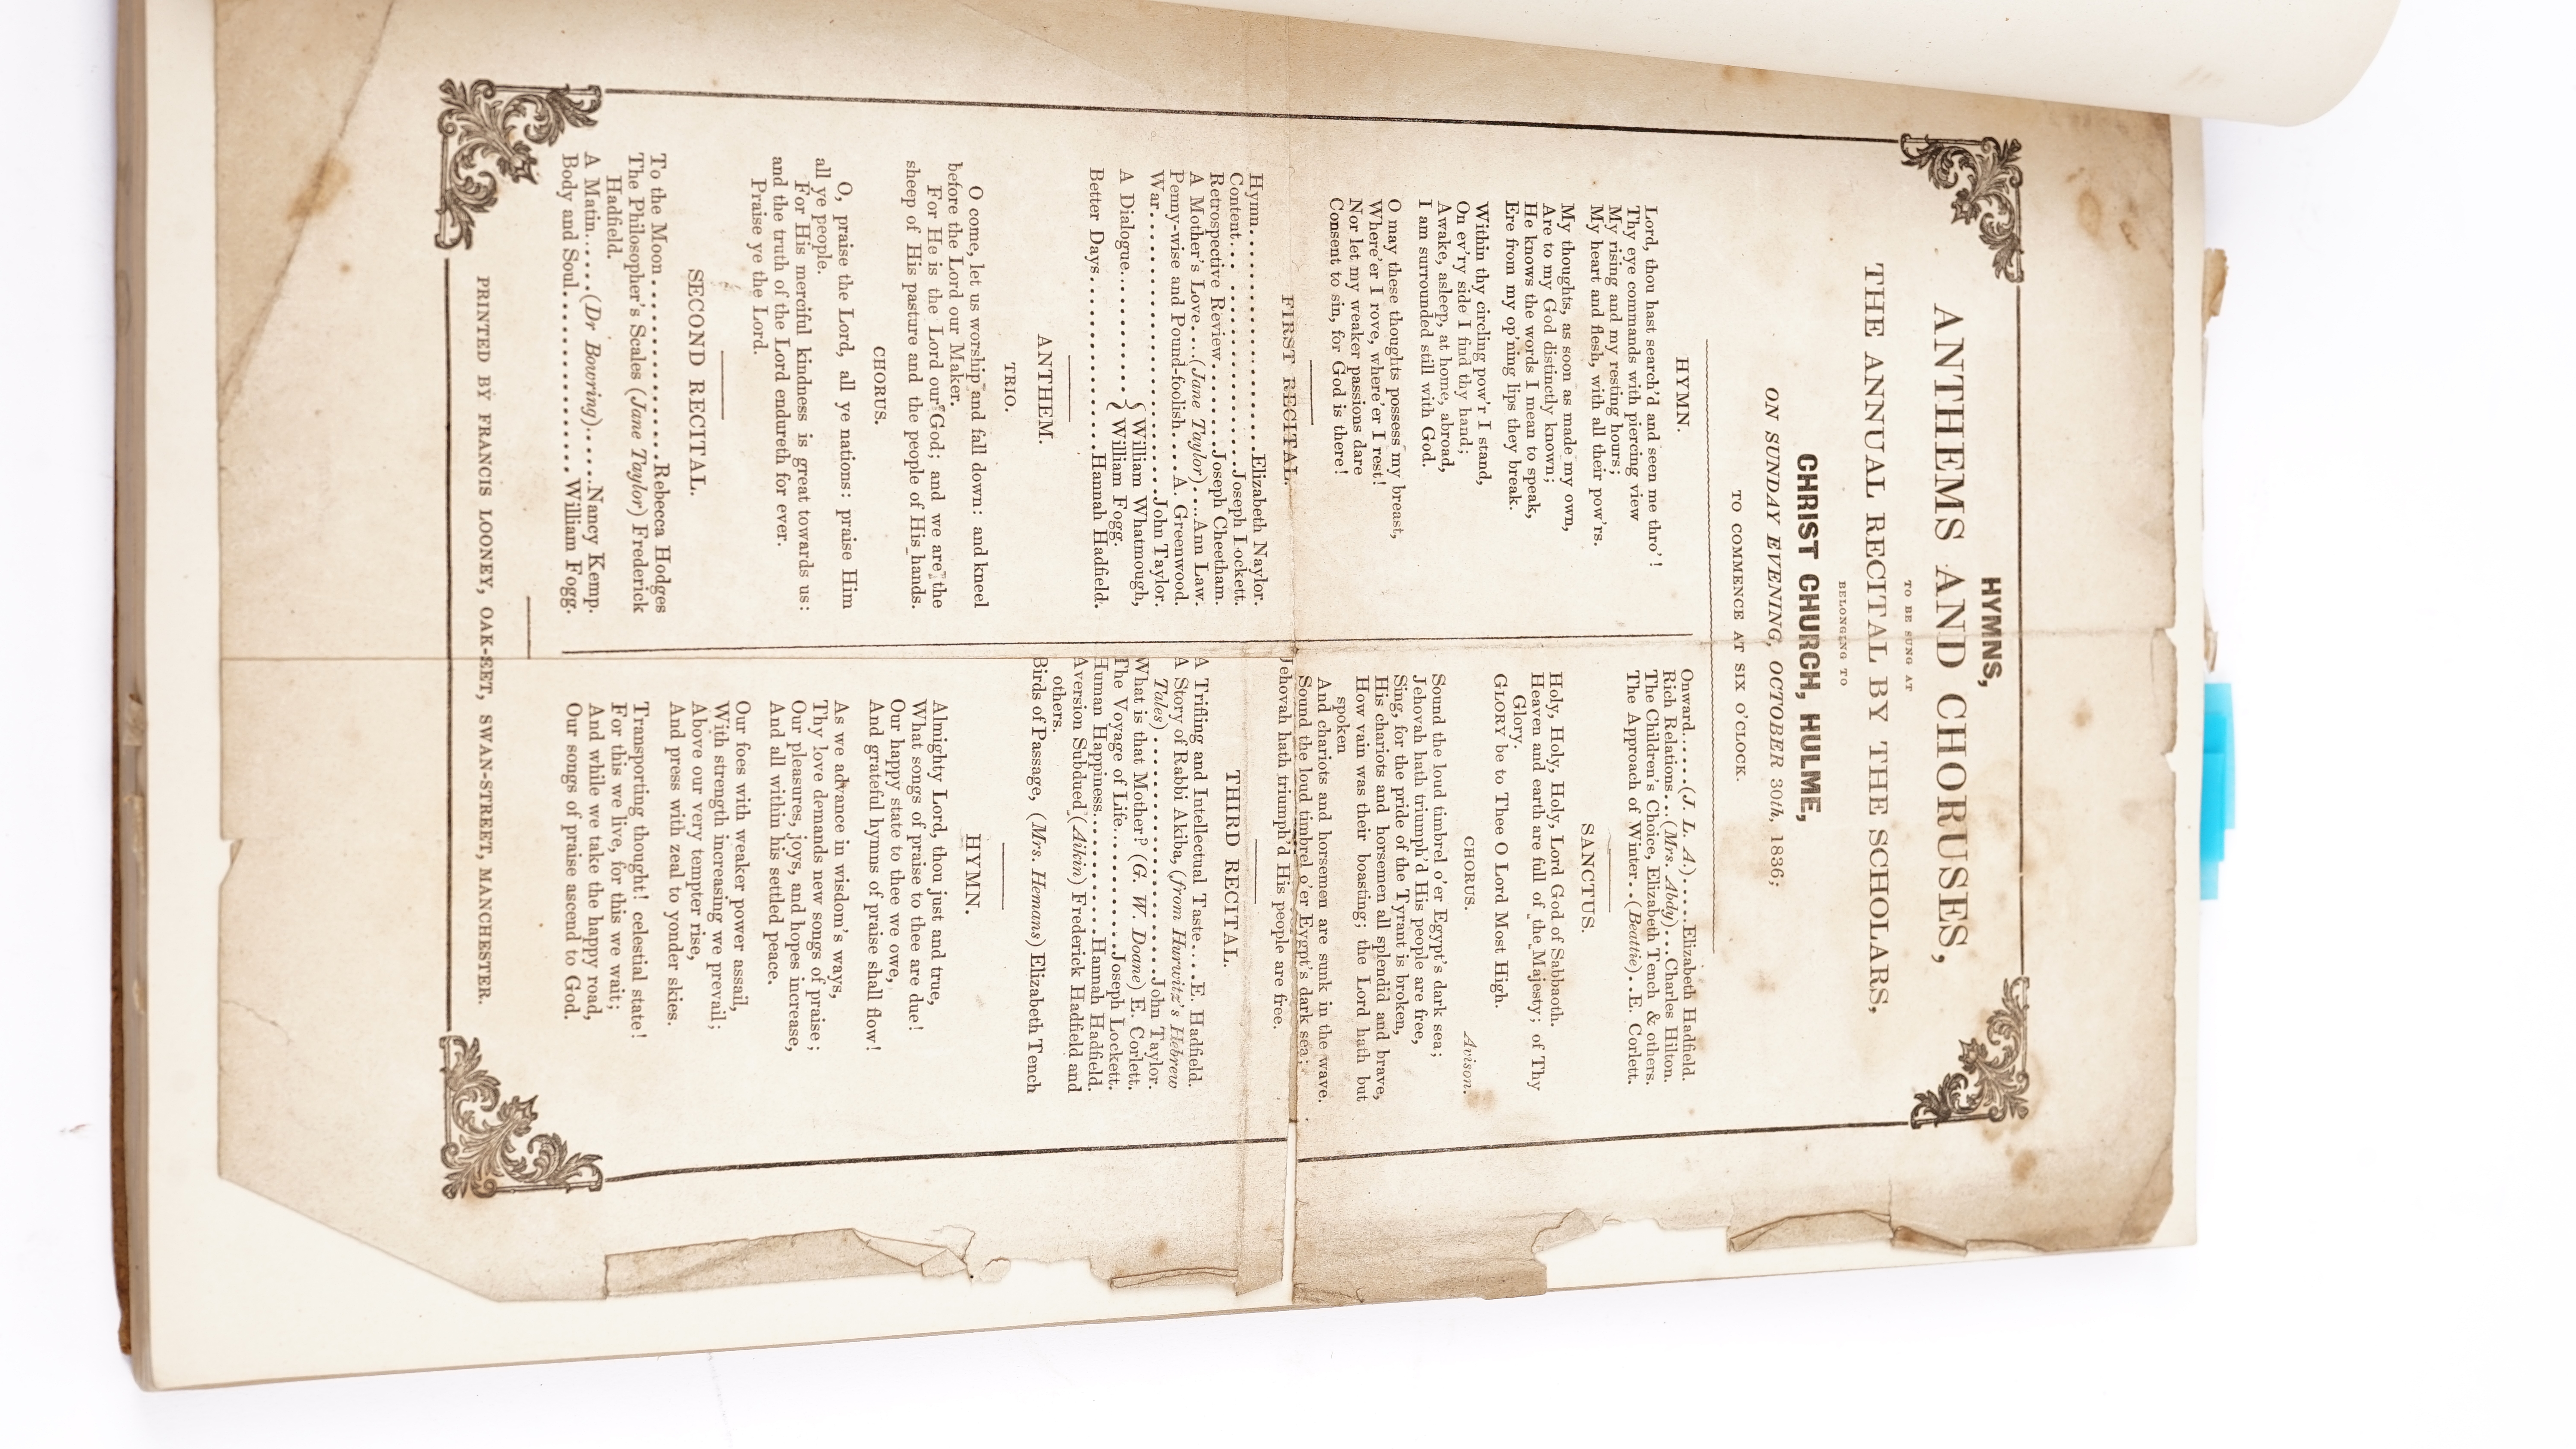 HYMNS,
ANTHEMS AND CHORUSES,
TO BE SUNG AT
THE ANNUAL RECITAL BY THE SCHOLARS,
BELONGING TO
CHRIST CHURCH, HULME,
ON SUNDAY EVENING, OCTOBER 30th, 1836;
TO COMMENCE AT SIX O'CLOCK.
HYMN.
Lord, thou hast search'd and seen me thro'!
Thy eye commands with piercing view
My rising and my resting hours;
My heart and flesh, with all their pow'rs.
My thoughts, as soon as made my own,
Are to my God distinctly known;
He knows the words I mean to speak,
Ere from my op'ning lips they break.
Within thy circling pow'r I stand,
On ev'ry side I find thy hand;
Awake, asleep, at home, abroad,
I am surrounded still with God.
O may these thoughts possess my breast,
Where'er I rove, where'er I rest!
Nor let my weaker passions dare
Consent to sin, for God is there!
FIRST RECITAL.
Hymn..............................Elizabeth Naylor.
Content... .......................Joseph Lockett.
Retrospective Review.........Joseph Cheetham.
A Mother's Love....(Jane Taylor)....Ann Law.
Penny-wise and Pound-foolish.....A. Greenwood.
War..............................John Taylor.
A Dialogue............{ William Whatmough,
{ William Fogg.
Better Days...................Hannah Hadfield.
ANTHEM.
TRIO.
O come, let us worship and fall down: and kneel
before the Lord our Maker.
For He is the Lord our God; and we are the
sheep of His pasture and the people of His hands.
CHORUS.
O, praise the Lord, all ye nations: praise Him
all ye people.
For His merciful kindness is great towards us:
and the truth of the Lord endureth for ever.
Praise ye the Lord.
SECOND RECITAL.
To the Moon.....................Rebecca Hodges
The Philosopher's Scales (Jane Taylor) Frederick
Hadfield.
A Matin......(Dr Bowring)......Nancy Kemp.
Body and Soul.....................William Fogg.
Onward......(J. L. A.)......Elizabeth Hadfield.
Rich Relations....(Mrs. Abdy)....Charles Hilton.
The Children's Choice, Elizabeth Tench & others.
The Approach of Winter..(Beattie)..E. Corlett.
SANCTUS.
Holy, Holy, Holy, Lord God of Sabbaoth.
Heaven and earth are full of the Majesty; of Thy
Glory.
GLORY be to Thee O Lord Most High.
CHORUS. Avison.
Sound the loud timbrel o'er Egypt's dark sea;
Jehovah hath triumph'd His people are free,
Sing, for the pride of the Tyrant is broken,
His chariots and horsemen all splendid and brave,
How vain was their boasting; the Lord hath but
spoken
And chariots and horsemen are sunk in the wave.
Sound the loud timbrel o'er Eygpt's dark sea;
Jehovah hath triumph'd His people are free.
THIRD RECITAL.
A Trifling and Intellectual Taste.....E. Hadfield.
A Story of Rabbi Akiba, (from Hurwitz's Hebrew
Tales).............................John Taylor.
What is that Mother? (G. W. Doane) E. Corlett.
The Voyage of Life.............Joseph Lockett.
Human Happiness..............Hannah Hadfield.
Aversion Subdued (Aikin) Frederick Hadfield and
others.
Birds of Passage, (Mrs. Hemans) Elizabeth Tench
HYMN.
Almighty Lord, thou just and true,
What songs of praise to thee are due!
Our happy state to thee we owe,
And grateful hymns of praise shall flow!
As we advance in wisdom's ways,
Thy love demands new songs of praise;
Our pleasures, joys, and hopes increase,
And all within his settled peace.
Our foes with weaker power assail,
With strength increasing we prevail;
Above our very tempter rise,
And press with zeal to yonder skies.
Transporting thought! celestial state!
For this we live, for this we wait;
And while we take the happy road,
Our songs of praise ascend to God.
PRINTED BY FRANCIS LOONEY, OAK-EET, SWAN-STREET, MANCHESTER.